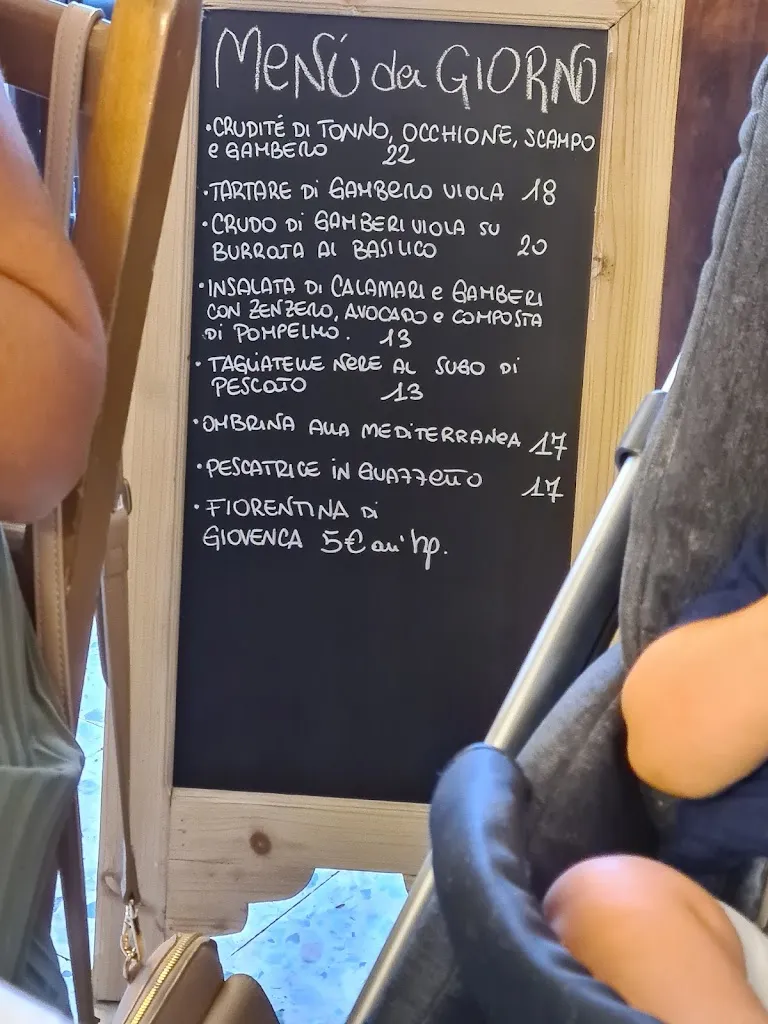 MENÚ del GIORNO
• CRUDITÉ DI TONNO, OCCHIONE, SCAMPO
e GAMBERO 22
• TARTARE DI GAMBERO VIOLA 18
• CRUDO DI GAMBERI VIOLA SU
BURRATA AL BASILICO 20
• INSALATA DI CALAMARI e GAMBERI
CON ZENZERO, AVOCADO e COMPOSTA
DI POMPELMO. 13
• TAGLIATELLE NERE AL SUGO DI
PESCATO 13
• OMBRINA ALLA MEDITERRANEA 17
• PESCATRICE IN GUAZZETTO 17
• FIORENTINA DI
GIOVENCA 5€ all'hg.